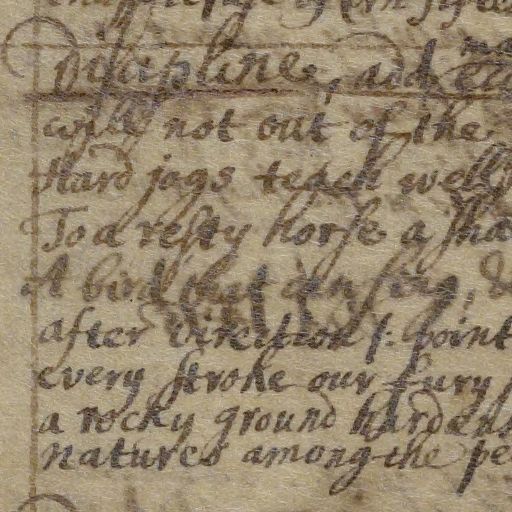 Discipline, and
will not out of the
Hard jags teach well
To a resty horse a
A bird that can sing,
after Direction : point
every stroke our fury
a rocky ground hardens
natures among the